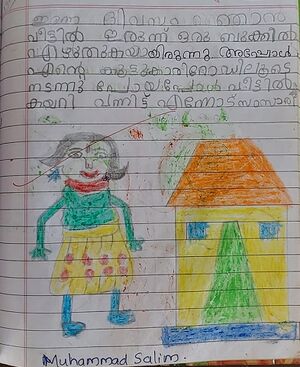 ഇന്നു ദിവസം ഞാൻ
വീട്ടിൽ ഇരുന്ന് ഒരു ബുക്കിൽ
എഴുതുകയായിരുന്നു അപ്പോൾ
എന്റെ കൂട്ടുകാരി റോഡിലൂടെ
നടന്നു പോയപ്പോൾ വീട്ടിൽ
കയറി വന്നിട്ട് എന്നോട് സംസാരി
Muhammad Salim.